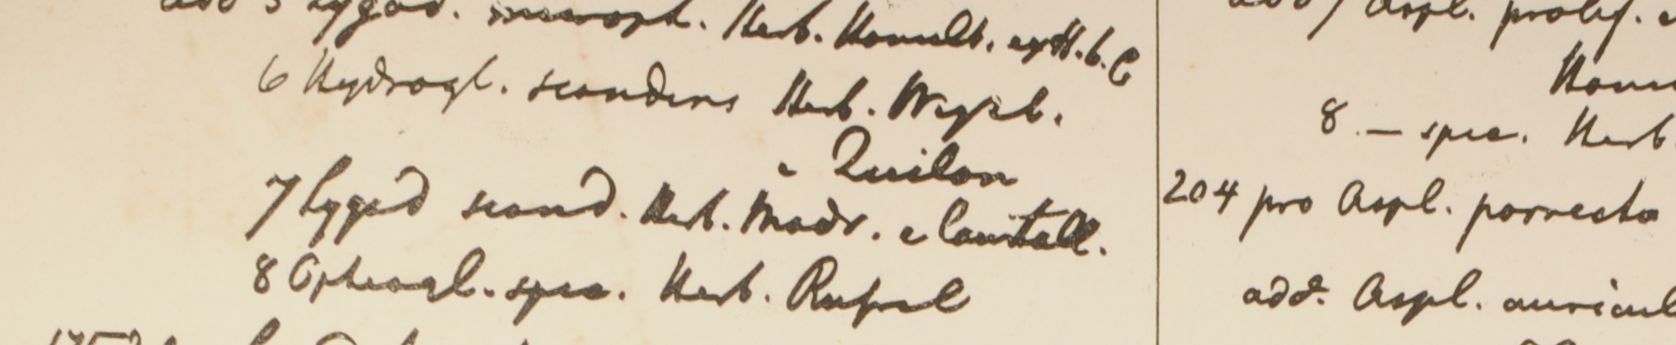 add 5 Lygod. microph. Herb. Hamilt. ex H.b.C
6 Hydrogl. scandens Herb. Wight.
e Quilon
7 Lygod scand. Herb. Madr. e Courtall.
8 Ophiogl. spec. Herb. Russel
add Aspl. prolif.
8 — spec. Herb
204 pro Aspl. porrecto
add. Aspl. auricul